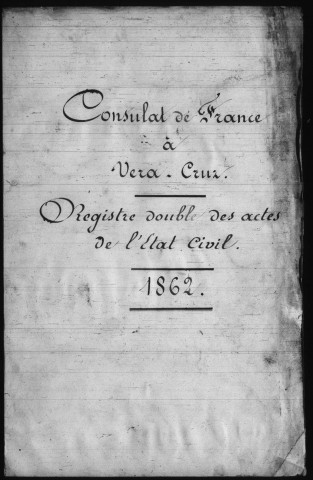 Consulat de France
à
Vera-Cruz.
Registre double des actes
de l'Etat Civil.
1862.